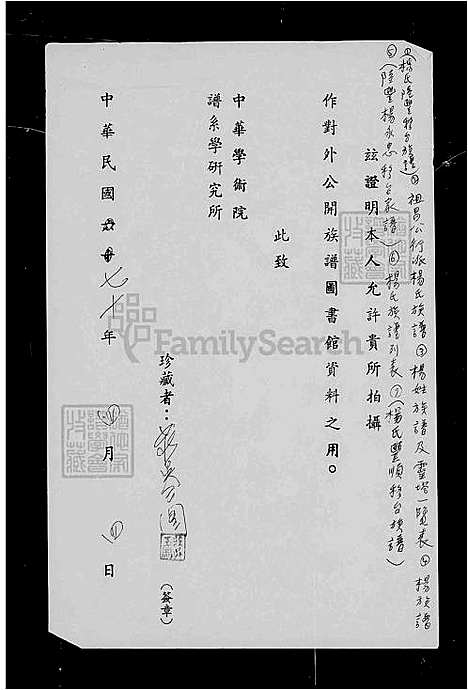 ①楊氏陸豐移台族譜②祖昌公衍派楊氏族譜③楊姓族譜及靈塔一覽表④楊族譜
⑤(陸豐楊永忠移台家譜)⑥楊氏族譜列表⑦(楊氏豐順移台族譜)
茲證明本人允許貴所拍攝
作對外公開族譜圖書館資料之用。
此致
中華學術院
譜系學研究所
珍藏者：
(簽章)
中華民國七十年四月四日
FamilySearch